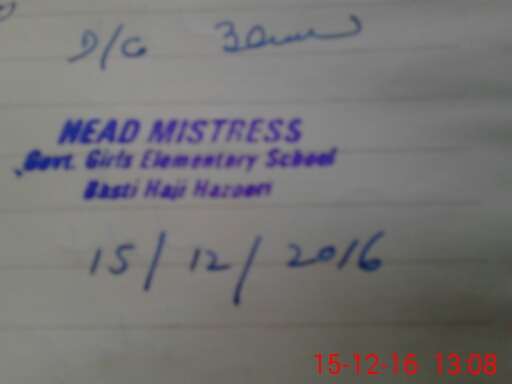 D/C
HEAD MISTRESS
Govt. Girls Elementary School
Basti Haji Hazoori
15/12/2016
15-12-16 13:08